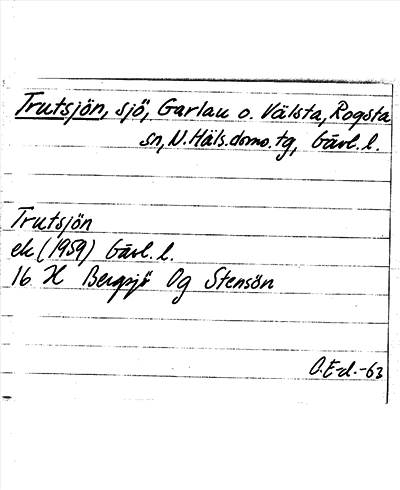 Trutsjön, sjö, Garlau o. Välsta, Rogsta
sn, N. Häls. doms. tg, Gävl. l.
Trutsjön
ek (1959) Gävl. l.
16 H Bergsjö Og Stensön
O. E-d. -63